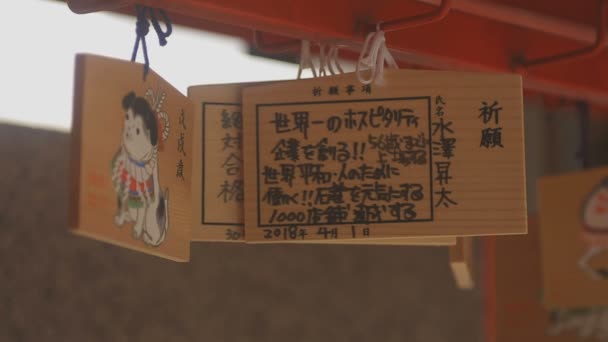 戊戌歳
絶対合格
30
祈願事項
世界一のホスピタリティ
企業を創る!!
56歳まで
上場する
世界平和・人のために
働く!!石垂を元気にする
1000店舗達成する
2018年 4月 1日
氏名
水澤昇太
祈願